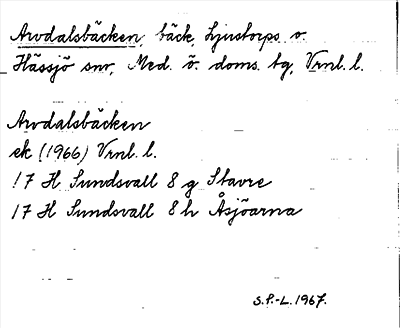 Arvdalsbäcken, bäck, Ljustorps o.
Hässjö snr, Med. ö. doms. tg, Vrnl. l.
Arvdalsbäcken
ek (1966) Vrnl. l.
17 H Sundsvall 8 g Stavre
17 H Sundsvall 8 h Åsjöarna
S.P.-L. 1967.